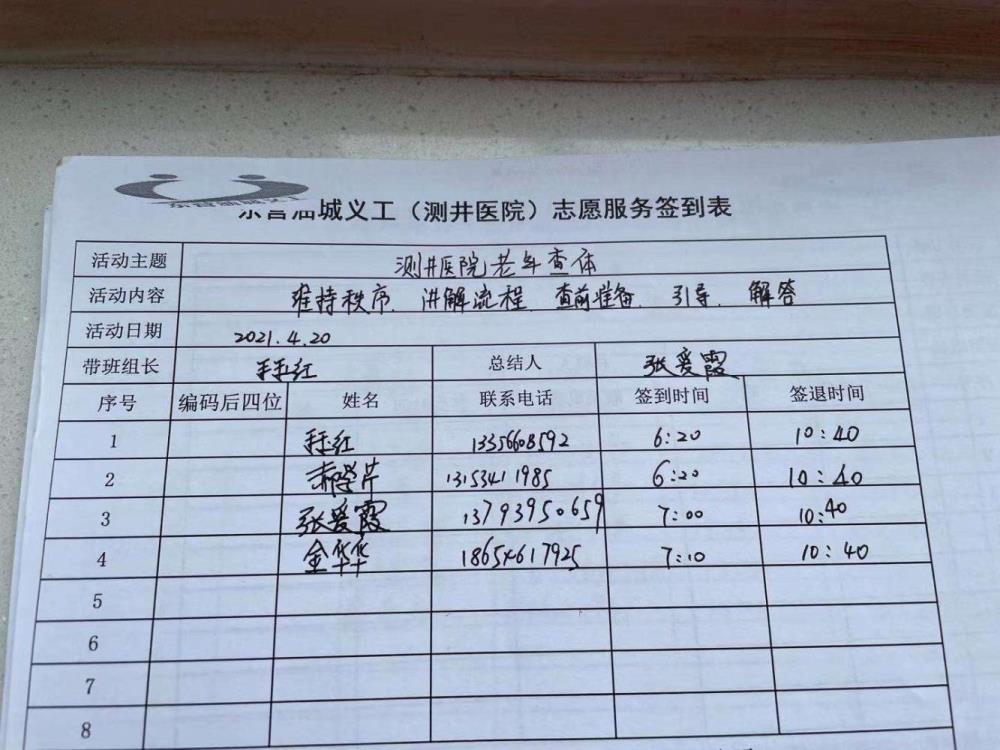 东营油城义工（测井医院）志愿服务签到表
活动主题 测井医院老年查体
活动内容 维持秩序、讲解流程、查前准备、引导、解答
活动日期 2021.4.20
带班组长 总结人 张爱霞
序号 编码后四位 姓名 联系电话 签到时间 签退时间
1 13356608592 6:20 10:40
2 13153411985 6:20 10:40
3 张爱霞 13793950659 7:00 10:40
4 金华华 18654617925 7:10 10:40
5
6
7
8